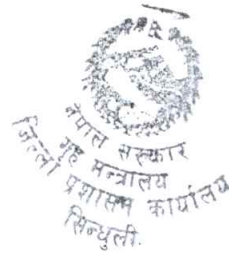 नेपाल सरकार
गृह मन्त्रालय
जिल्ला प्रशासन कार्यालय
सिन्धुली.